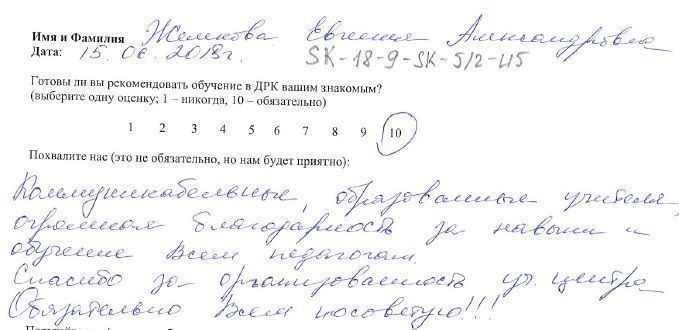 Имя и Фамилия Желнова Евгения Александровна
Дата: 15.06.2018г. SK-18-9-SK-5/2-И5
Готовы ли вы рекомендовать обучение в ДРК вашим знакомым?
(выберите одну оценку; 1 – никогда, 10 – обязательно)
1 2 3 4 5 6 7 8 9 10
Похвалите нас (это не обязательно, но нам будет приятно):
Коммуникабельные, образованные учителя,
огромная благодарность за навыки и
обучение всем педагогам.
Спасибо за организованность уч. центра
Обязательно Всем посоветую!!!